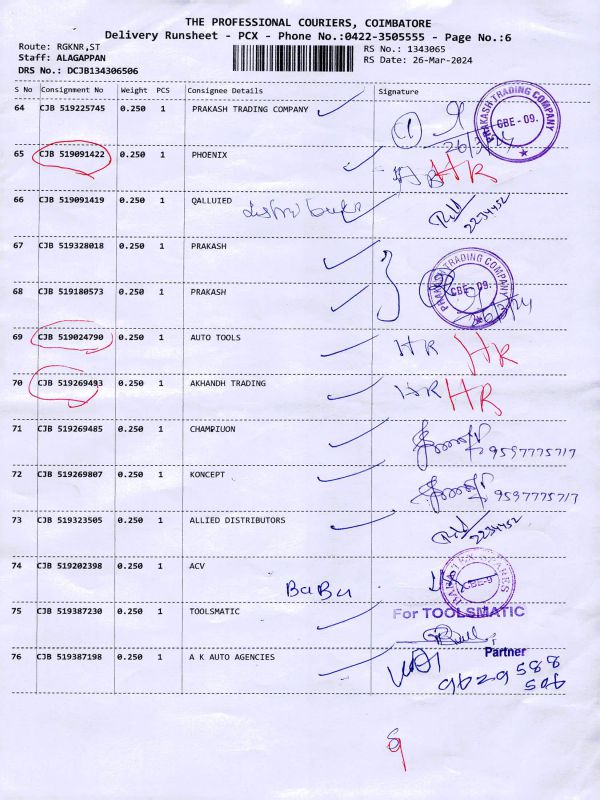 THE PROFESSIONAL COURIERS, COIMBATORE
Delivery Runsheet - PCX - Phone No.:0422-3505555 - Page No.:6
Route: RGKNR,ST
RS No.: 1343065
Staff: ALAGAPPAN
RS Date: 26-Mar-2024
DRS No.: DCJB134306506
S No Consignment No Weight PCS Consignee Details Signature
64 CJB 519225745 0.250 1 PRAKASH TRADING COMPANY
PRAKASH TRADING COMPANY CBE - 09.
26/3/24
65 CJB 519091422 0.250 1 PHOENIX HR
66 CJB 519091419 0.250 1 QALLUIED
2234452
67 CJB 519328018 0.250 1 PRAKASH
PRAKASH TRADING COMPANY CBE - 09.
68 CJB 519180573 0.250 1 PRAKASH
26/3/24
69 CJB 519024790 0.250 1 AUTO TOOLS HR HR
70 CJB 519269493 0.250 1 AKHANDH TRADING HR HR
71 CJB 519269485 0.250 1 CHAMPIUON
9597775717
72 CJB 519269807 0.250 1 KONCEPT
9597775717
73 CJB 519323505 0.250 1 ALLIED DISTRIBUTORS
2234452
74 CJB 519202398 0.250 1 ACV
BaBu
CBE-9
75 CJB 519387230 0.250 1 TOOLSMATIC
For TOOLSMATIC
Partner
76 CJB 519387198 0.250 1 A K AUTO AGENCIES
9